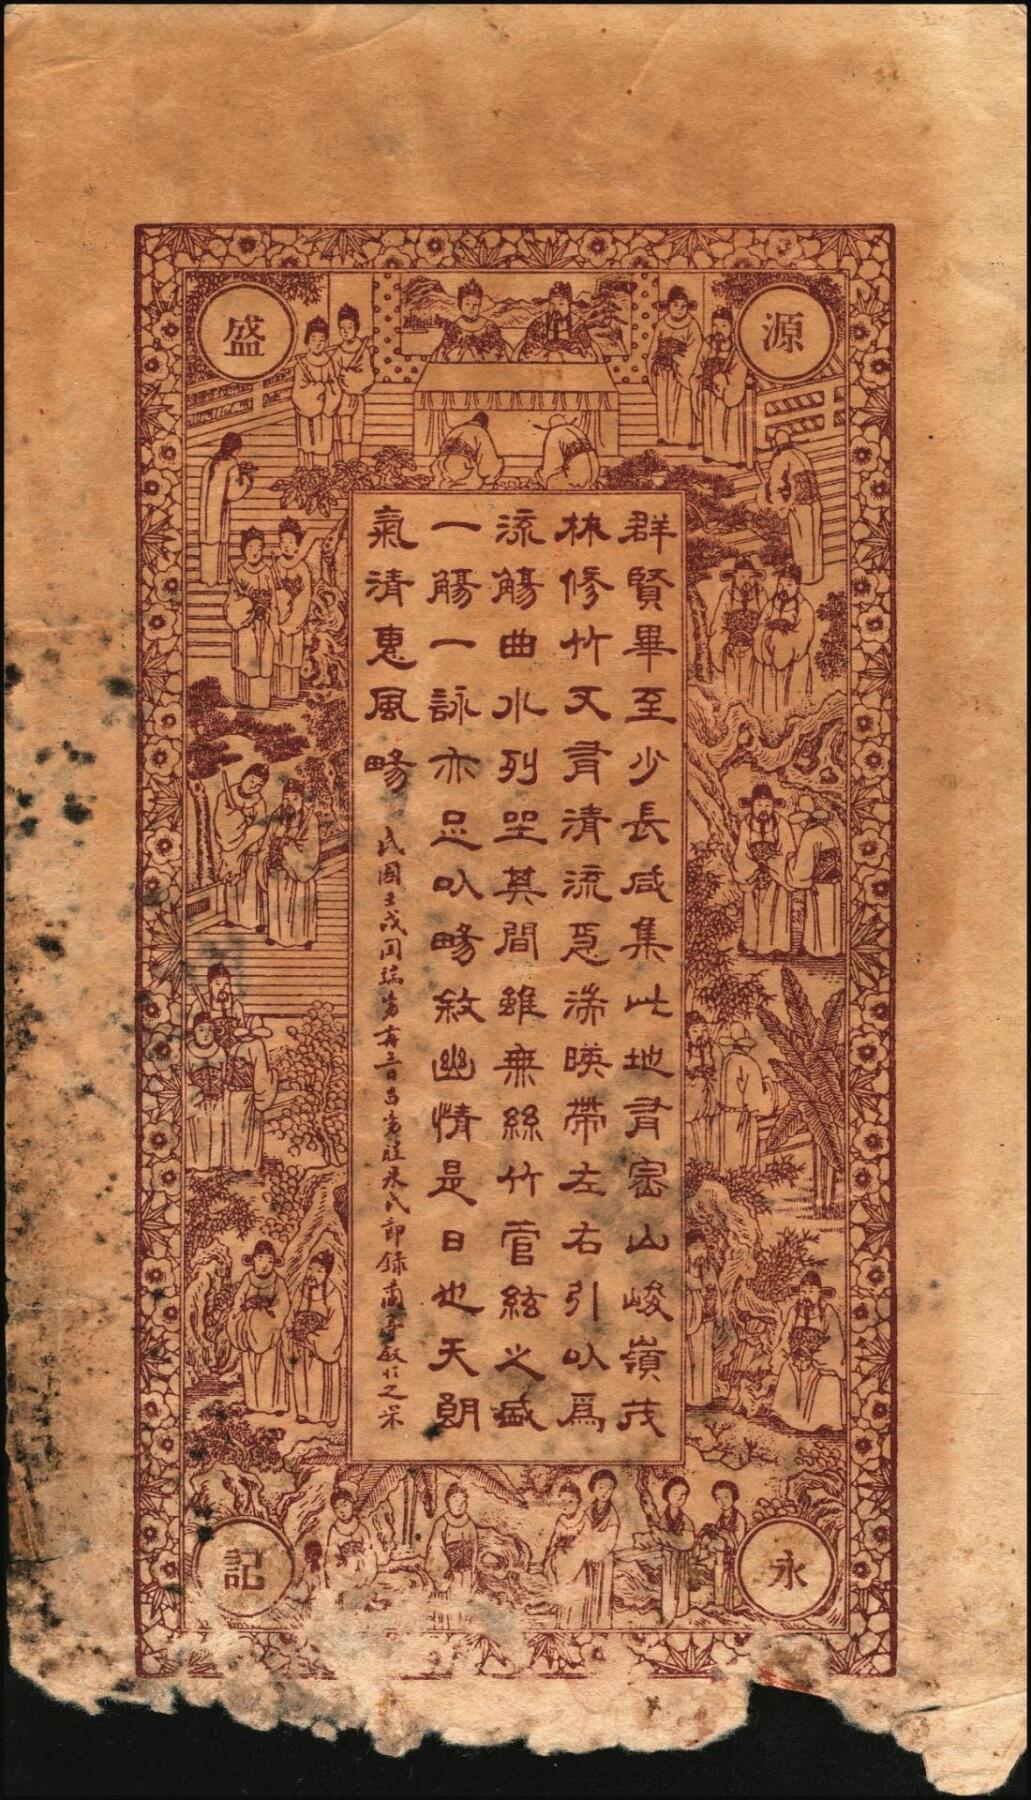 源
盛
群賢畢至少長咸集此地有崈山峻嶺茂
林修竹又有清流急湍暎帶左右引以爲
流觴曲水列坐其間雖無絲竹管絃之盛
一觴一詠亦足以暢敘幽情是日也天朗
氣清惠風暢
民國壬戌閏端三日朱氏節錄蘭亭敘之
永
記